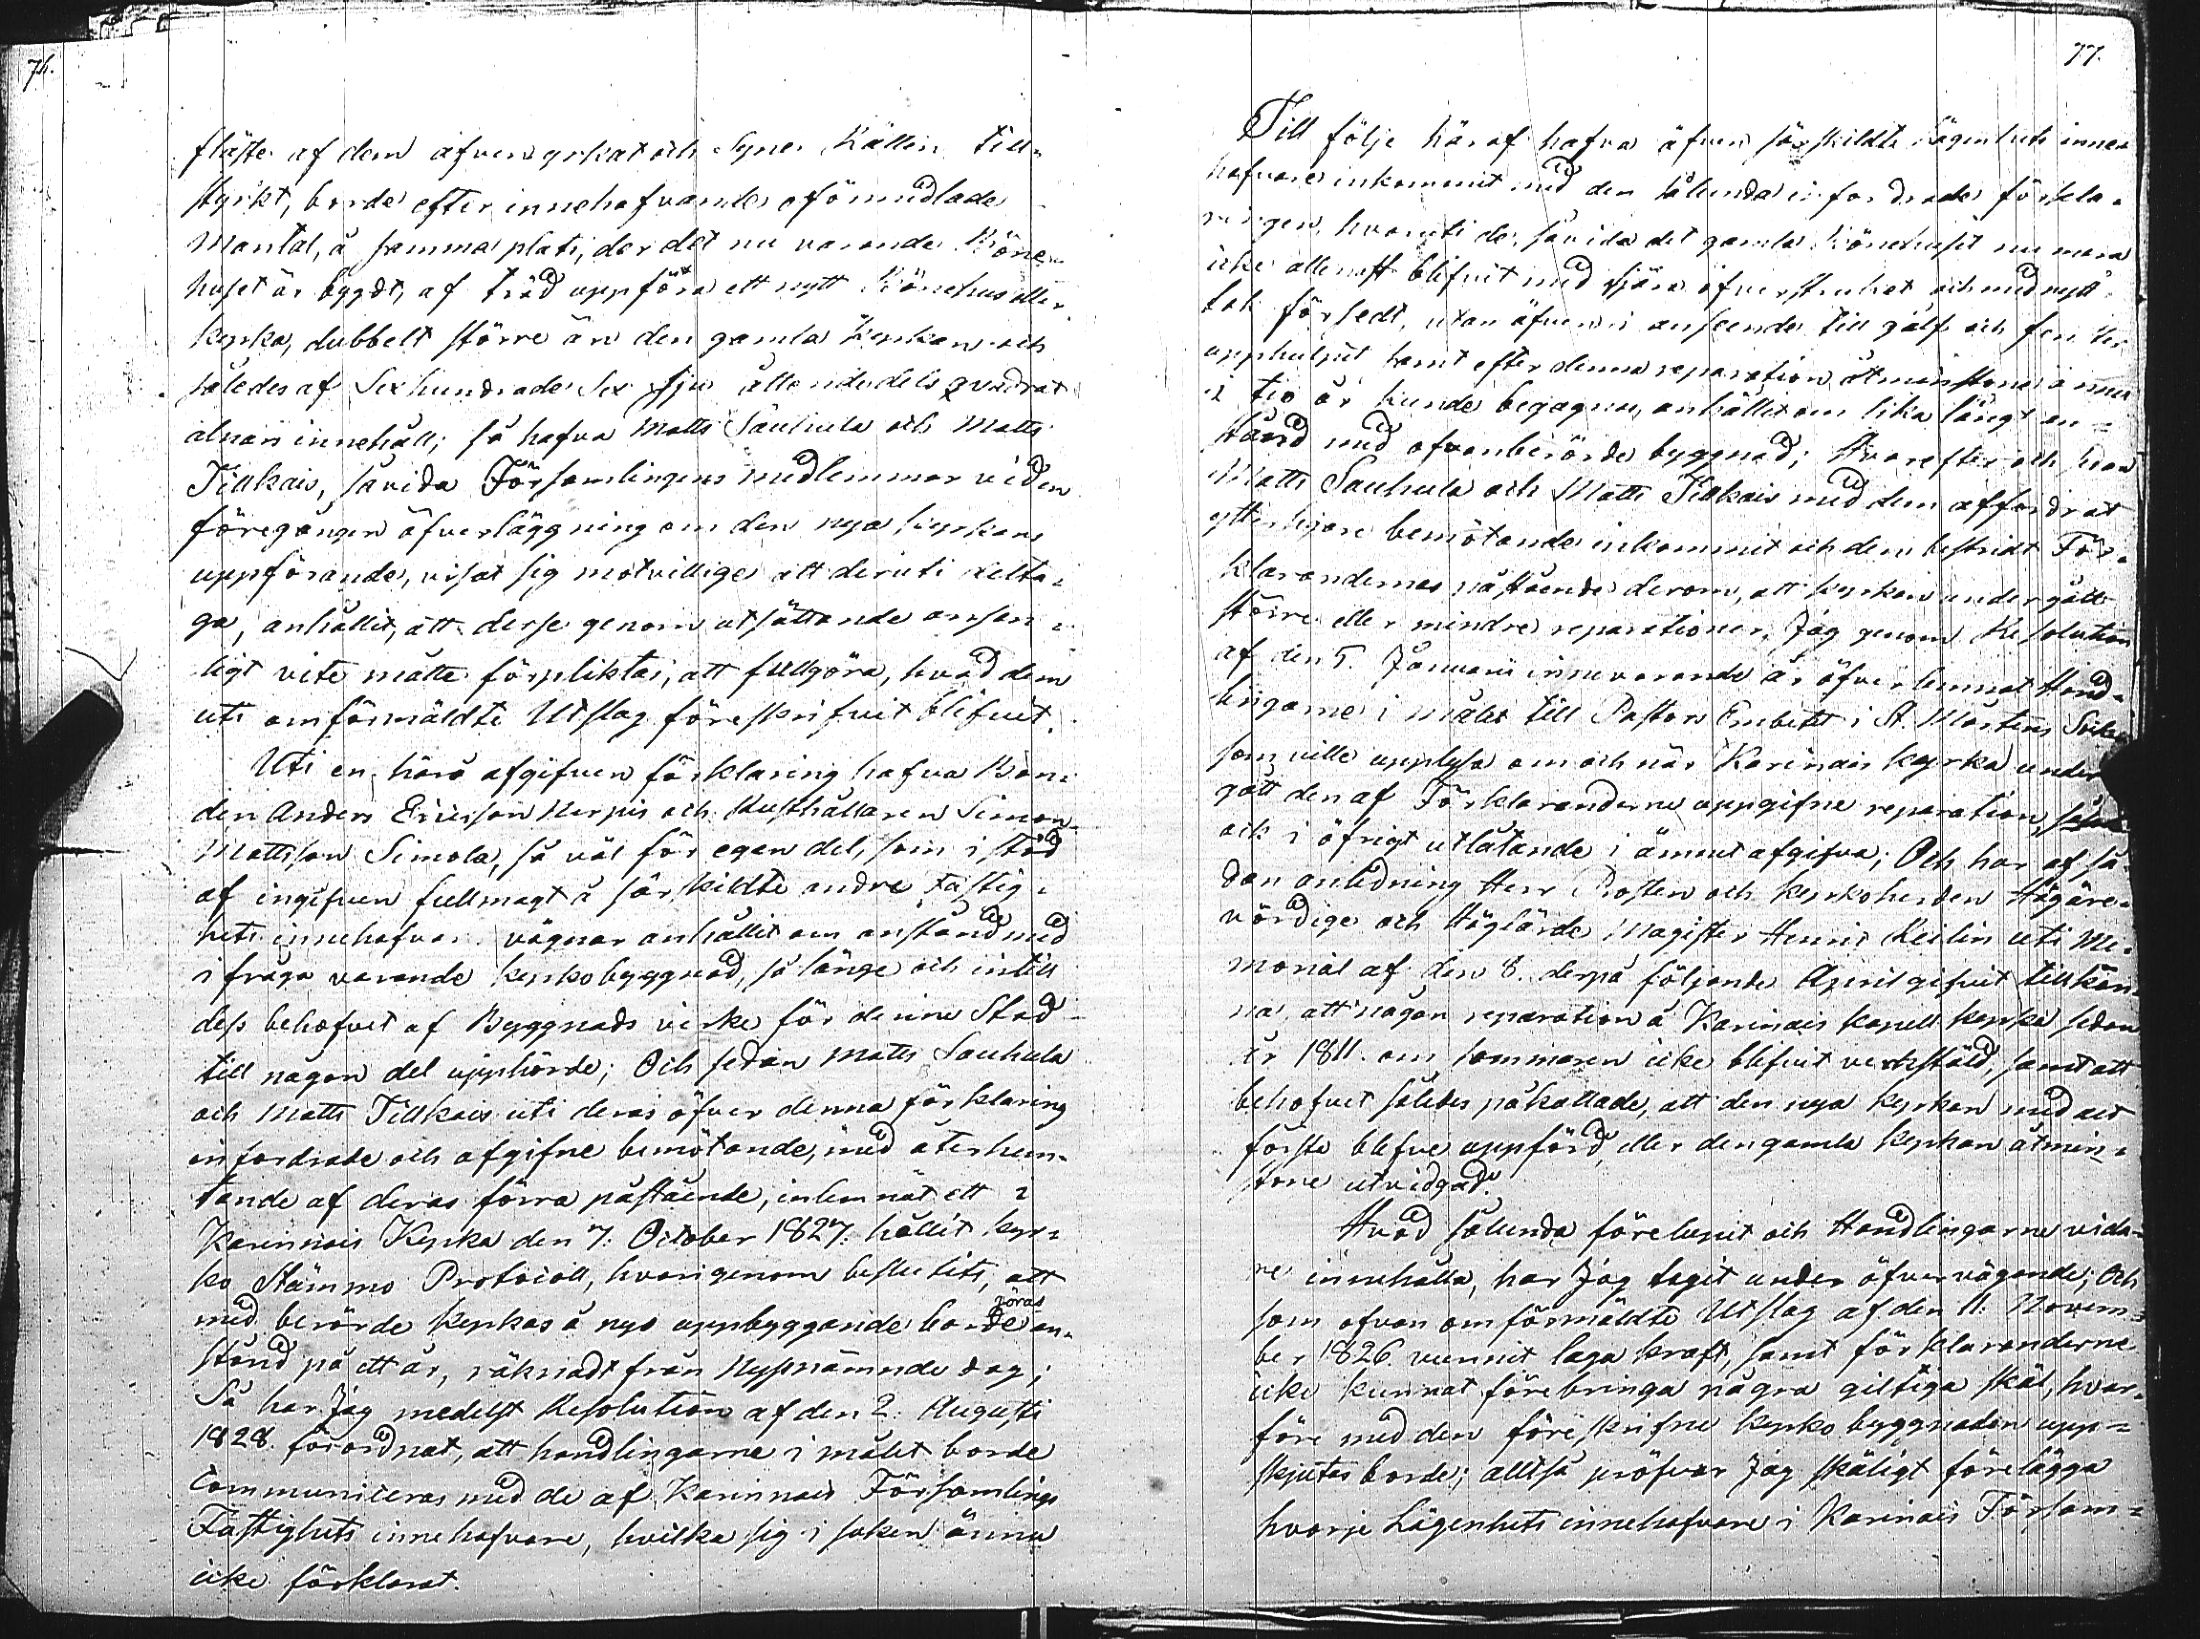 76.
fläste af dem äfven yrkat och Syner Källin till-
styrkt, borde efter innehafvande oförmedlade
Mantal, å samma plats, der det nu varande Böne-
huset är bygdt, af träd uppföra ett nytt Bönehus eller
kyrka, dubbelt större än den gamla kyrkan och
således af Sex hundrade Sex sju åttondedels qvadrat
alnars innehåll; så hafva Matts Sauhula och Matts
Tillkais, såvida Församlingens medlemmar vid en
föregången öfverläggning om den nya kyrkans
uppförande, visat sig motvillige att deruti delta-
ga, anhållit, att desse genom utsättande ansen-
ligt vite måtte förpliktas, att fullgöra, hvad dem
uti omförmäldte Utslag föreskrifvit blifvit.
Uti en härå afgifven förklaring hafva Bon-
den Anders Ericsson Nerpis och Rusthållaren Simon
Mattsson Simola, så väl för egen del, som i stöd
af ingifven fullmagt å särskildte andre Fastig-
hets innehafvar. vägnar anhållit om anstånd med
i fråga varande kyrkobyggnad, så länge och intill
dess behofvet af Byggnads virke för denne Stad
till någon del upphörde; Och sedan Matts Sauhula
och Matts Tillkais uti deras öfver denna förklaring
infordrade och afgifne bemötande, med återhem-
tande af deras förra påstående, inlemnat ett i
Karinnais Kyrka den 7. October 1827. hållit kyr-
ko Stämmo Protocoll, hvarigenom beslutits, att
med berörde kyrkas å nyo uppbyggande borde göras an-
stånd på ett år, räknadt från nyssnämnde dag;
Så har Jag medelst Resolution af den 2. Augusti
1828. förordnat, att handlingarne i målet borde
Communiceras med de af Karinnais Församlings
Fastighets innehafvare, hvilka sig i saken ännu
icke förklarat.
77.
Till följe häraf hafva äfven särskildte Lägenhets inne-
hafvare inkommit med den sålunda infordrade förkla-
ringen, hvaruti de, såvida det gamla Bönehuset nu mera
icke allenast blifvit med tjära öfverstruket och med nytt
tak försedt, utan äfven i anseende till golf och fenster
upphulpit samt efter denna reparation åtminstone ännu
i tio år kunde begagnas, anhållit om lika långt an-
stånd med ofvanberörde byggnad; Hvarefter och sedan
Matts Sauhula och Matts Tillkais med dem affordrat
ytterligare bemötande inkommit och dem bestridt För-
klarandernas påstående derom, att kyrkan undergått
större eller mindre reparationer, Jag genom Resolution
af den 5. Januarii innevarande år öfverlemnat Hand-
lingarne i målet till Pastors Embetet i St. Mårtens Sokn
som ville upplysa om och när Karinais kyrka under
gått den af Förklaranderne uppgifne reparation,
och i öfrigt utlåtande i ämnet afgifva; Och har af så-
dan anledning Herr Prosten och kyrkoherden Högäre-
vördige och Höglärde Magister Henric Keilin uti Me-
morial af den 8. derpå följande April gifvit tillkän-
na, att någon reparation å Karinais kapell kyrka sedan
år 1811. om sommaren icke blifvit verkstäld, samt att
behofvet således påkallade, att den nya kyrkan med det
första blefve uppförd, eller den gamla kyrkan åtmin-
stone utvidgad.
Hvad sålunda förelupit och Handlingarne vida-
re innehålla, har Jag tagit under öfvervägande; Och
som ofvan omförmäldte Utslag af den 11. Novem-
ber 1826. vunnit laga kraft, samt förklaranderne
icke kunnat förebringa några giltiga skäl, hvar-
före med den föreskrifne kyrko byggnaden upp-
skjutas borde; alltså pröfvar Jag skäligt förelägga
hvarje Lägenhets innehafvare i Karinais Försam-